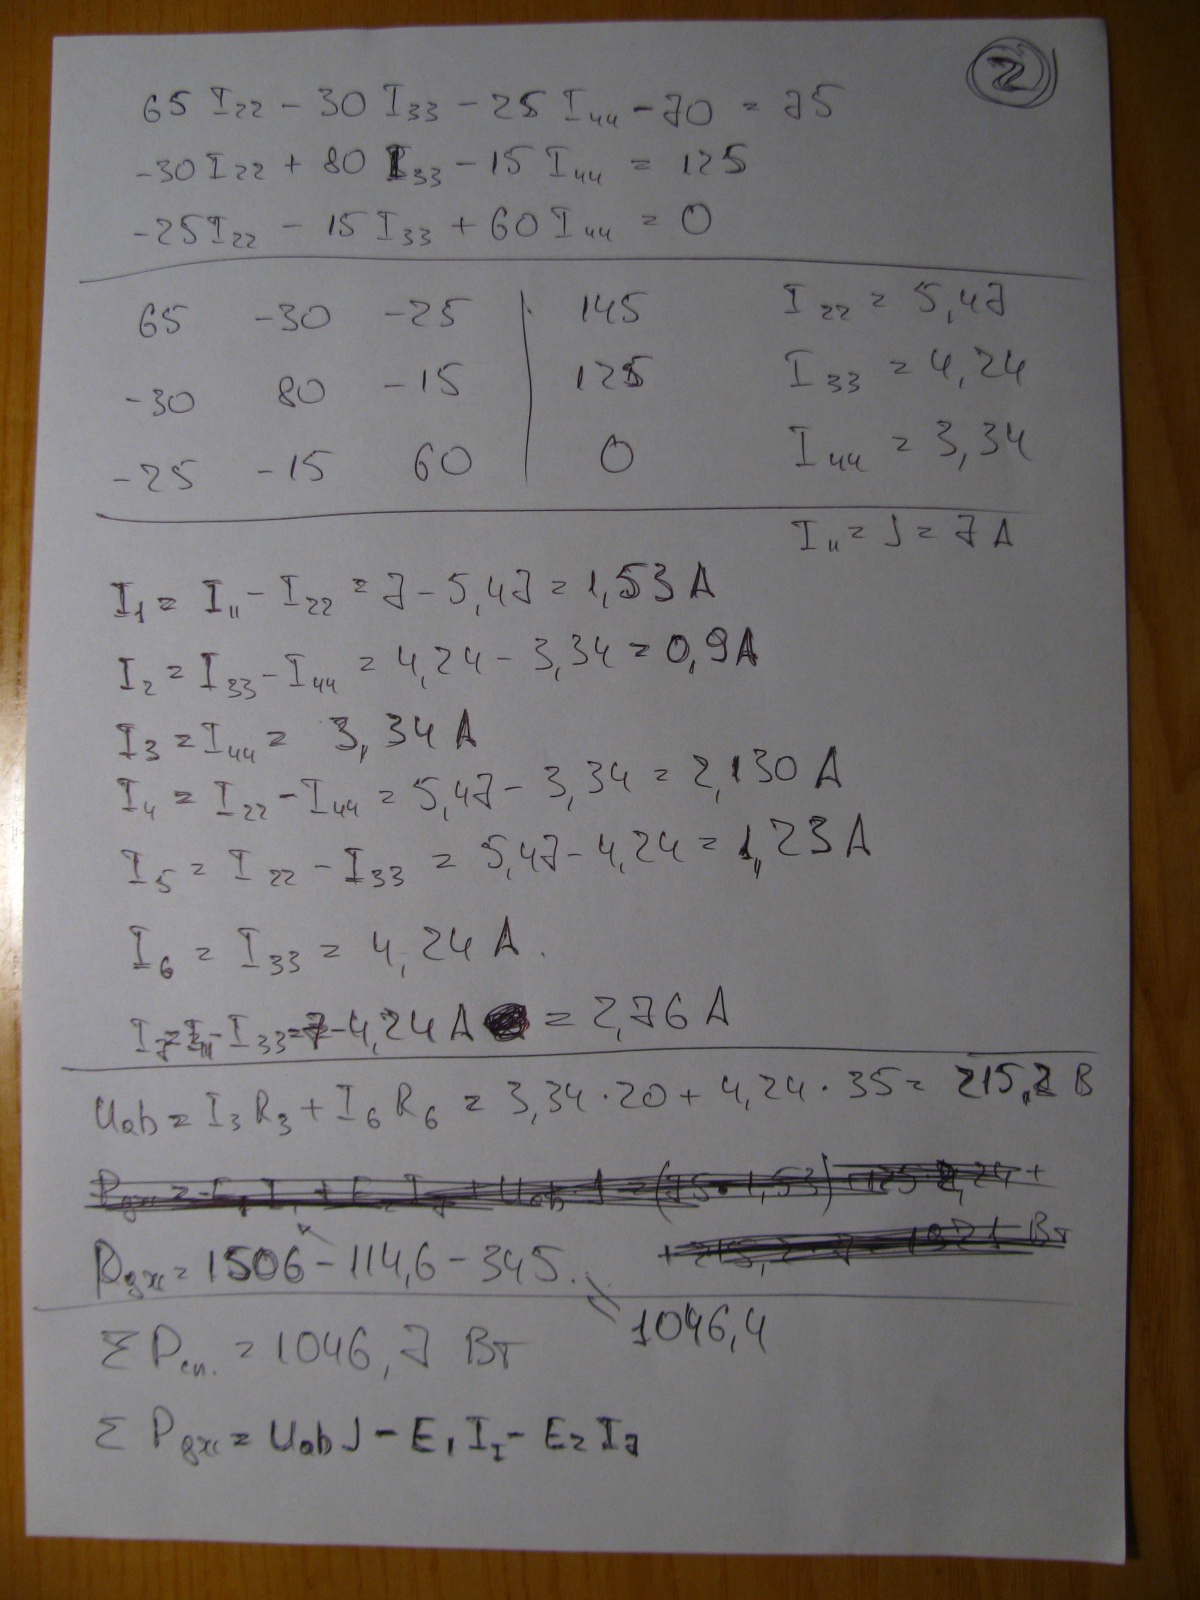 2
65 I₂₂ - 30 I₃₃ - 25 I₄₄ - 70 = 75
-30 I₂₂ + 80 I₃₃ - 15 I₄₄ = 125
-25 I₂₂ - 15 I₃₃ + 60 I₄₄ = 0
65 -30 -25 | 145 I₂₂ = 5,47
-30 80 -15 | 125 I₃₃ = 4,24
-25 -15 60 | 0 I₄₄ = 3,34
I₁₁ = J = 7 A
I₁ = I₁₁ - I₂₂ = 7 - 5,47 = 1,53 A
I₂ = I₃₃ - I₄₄ = 4,24 - 3,34 = 0,9 A
I₃ = I₄₄ = 3,34 A
I₄ = I₂₂ - I₄₄ = 5,47 - 3,34 = 2,130 A
I₅ = I₂₂ - I₃₃ = 5,47 - 4,24 = 1,23 A
I₆ = I₃₃ = 4,24 A.
I₇ = I₁₁ - I₃₃ = 7 - 4,24 A = 2,76 A
Uab = I₃ R₃ + I₆ R₆ = 3,34 · 20 + 4,24 · 35 = 215,2 В
Pджс = 1506 - 114,6 - 345. = 1046,4
Σ Pсп. = 1046,7 Вт
Σ Pджс = Uab J - E₁ I₁ - E₂ I₇